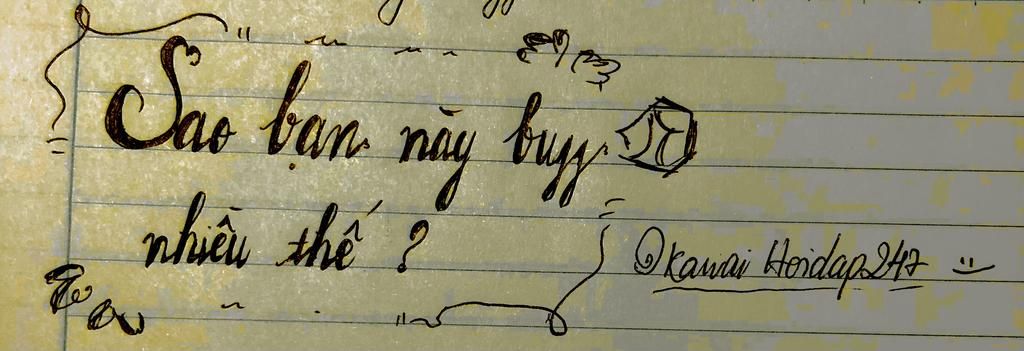 Sao bạn này buff
nhiều thế ?
@kawai Hoidap247